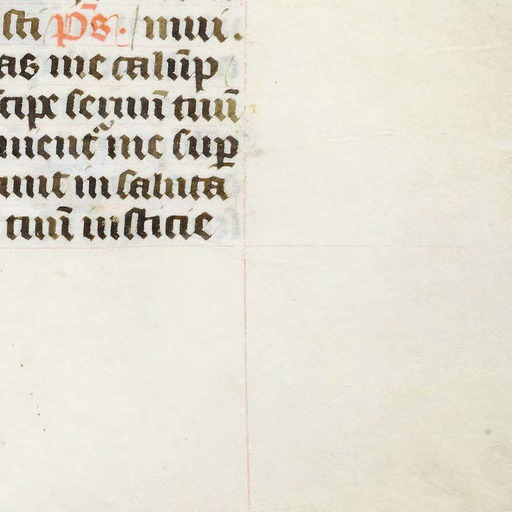 sti p̄s. mui.
as me calūp
cipe seruū tuū
nient̄ me sup̱
unt in saluta
tuū iusticie